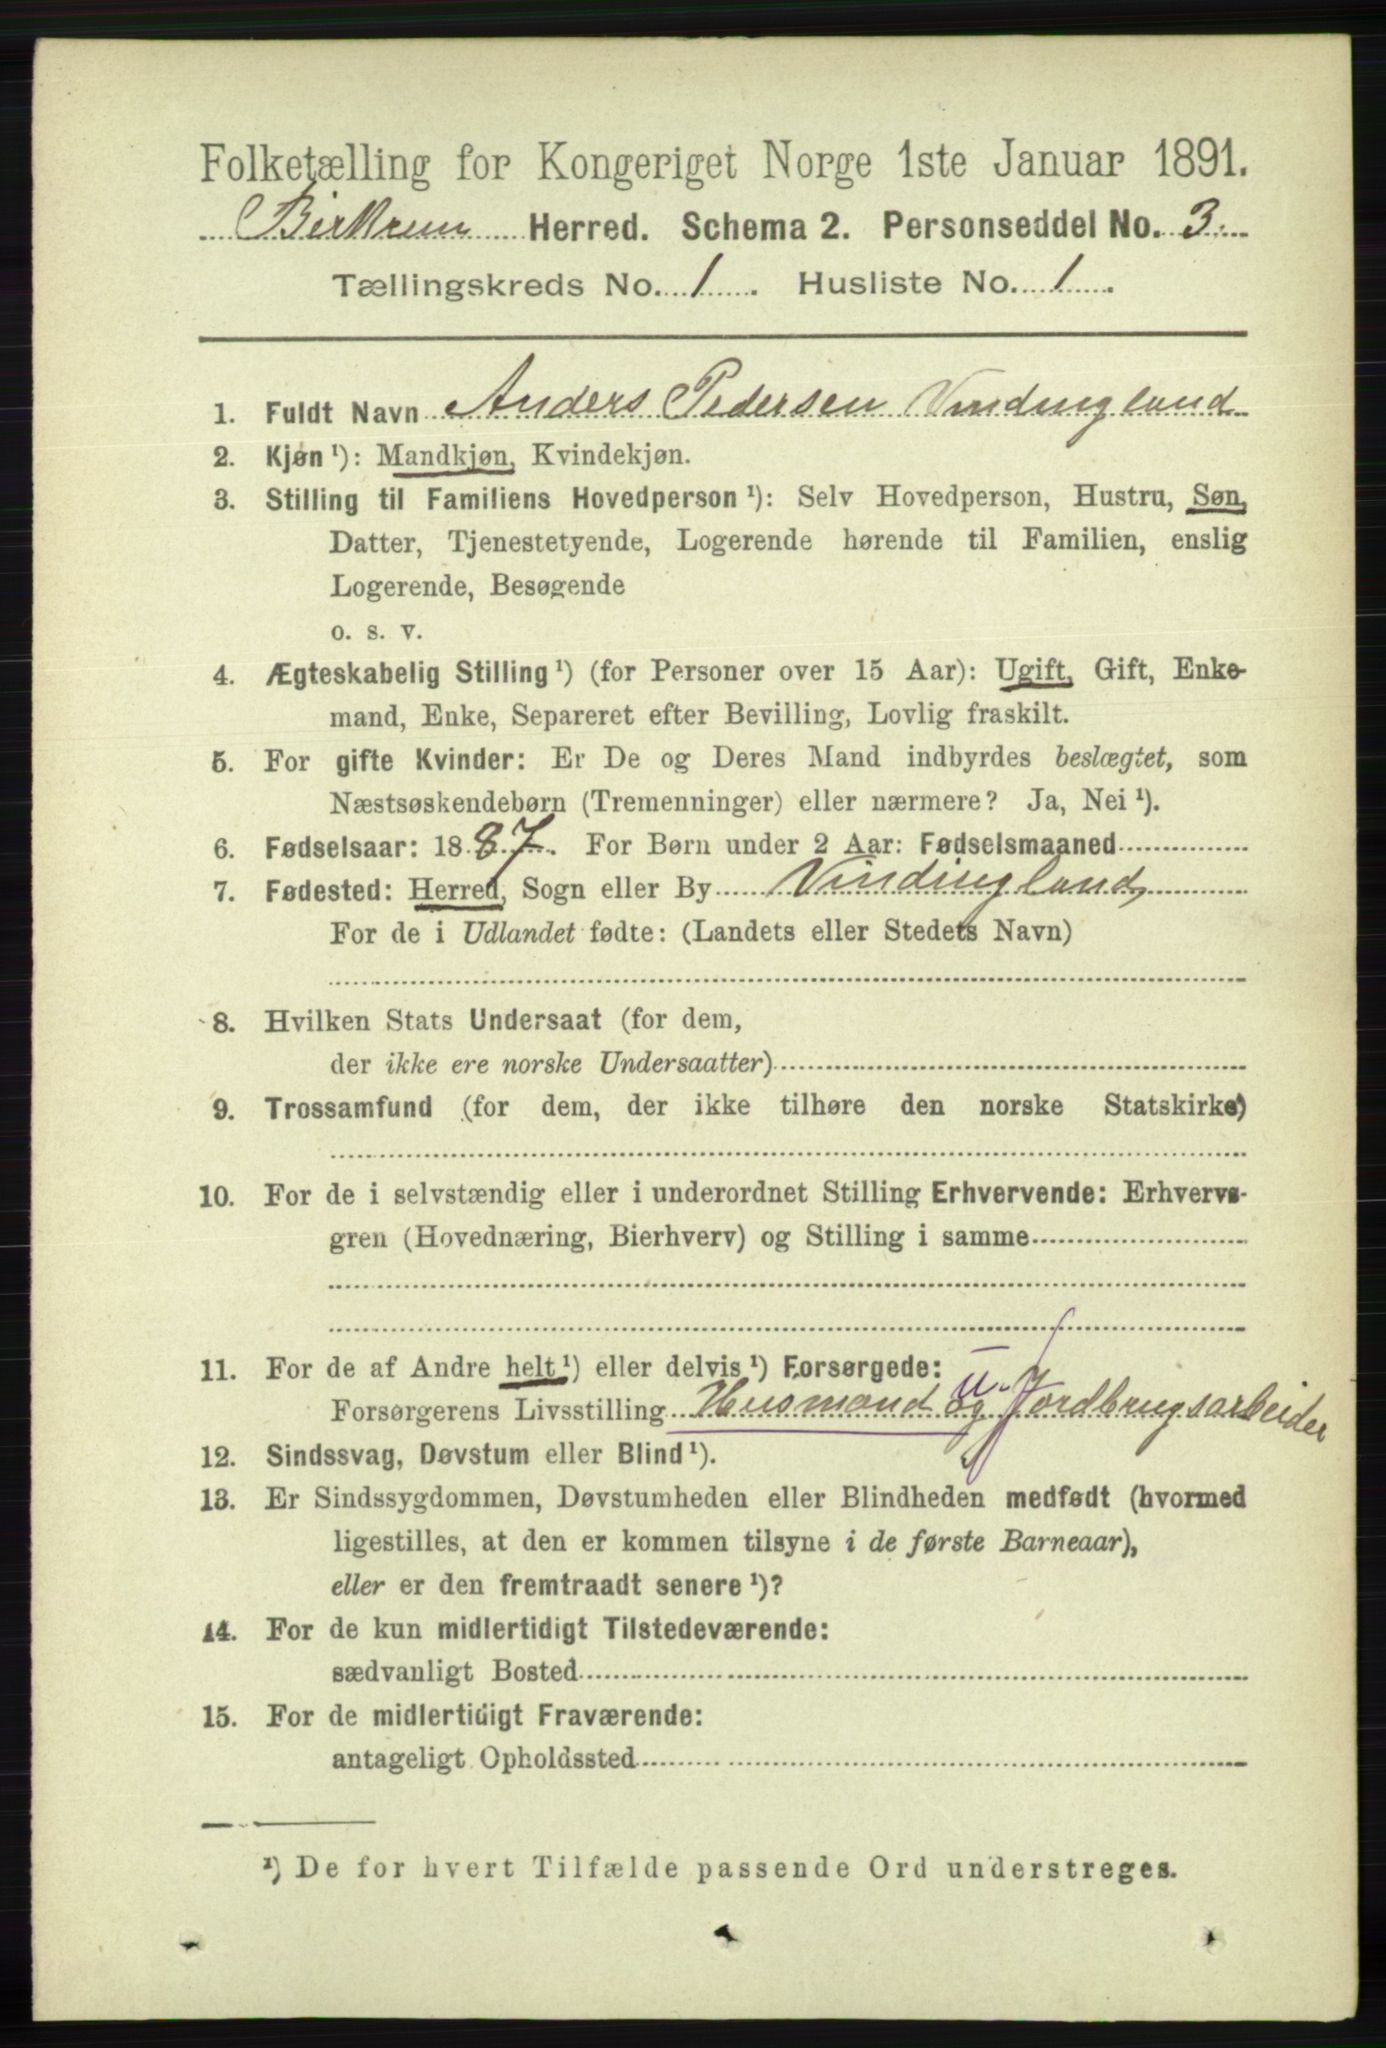 Folketælling for Kongeriget Norge 1ste Januar 1891.
Birkrem Herred. Schema 2. Personseddel No. 3.
Tællingskreds No. 1. Husliste No. 1.
1. Fuldt Navn Anders Pedersen Vindingland
2. Kjøn ¹): Mandkjøn, Kvindekjøn.
3. Stilling til Familiens Hovedperson ¹): Selv Hovedperson, Hustru, Søn,
Datter, Tjenestetyende, Logerende hørende til Familien, enslig
Logerende, Besøgende
o. s. v.
4. Ægteskabelig Stilling ¹) (for Personer over 15 Aar): Ugift, Gift, Enke-
mand, Enke, Separeret efter Bevilling, Lovlig fraskilt.
5. For gifte Kvinder: Er De og Deres Mand indbyrdes beslægtet, som
Næstsøskendebørn (Tremenninger) eller nærmere? Ja, Nei ¹).
6. Fødselsaar: 1887. For Børn under 2 Aar: Fødselsmaaned
7. Fødested: Herred, Sogn eller By Vindingland,
For de i Udlandet fødte: (Landets eller Stedets Navn)
8. Hvilken Stats Undersaat (for dem,
der ikke ere norske Undersaatter)
9. Trossamfund (for dem, der ikke tilhøre den norske Statskirke)
10. For de i selvstændig eller i underordnet Stilling Erhvervende: Erhvervs-
gren (Hovednæring, Bierhverv) og Stilling i samme
11. For de af Andre helt ¹) eller delvis ¹) Forsørgede:
Forsørgerens Livsstilling Husmand og Jordbrugsarbeider
12. Sindssvag, Døvstum eller Blind ¹).
13. Er Sindssygdommen, Døvstumheden eller Blindheden medfødt (hvormed
ligestilles, at den er kommen tilsyne i de første Barneaar),
eller er den fremtraadt senere ¹)?
14. For de kun midlertidigt Tilstedeværende:
sædvanligt Bosted
15. For de midlertidigt Fraværende:
antageligt Opholdssted
¹) De for hvert Tilfælde passende Ord understreges.